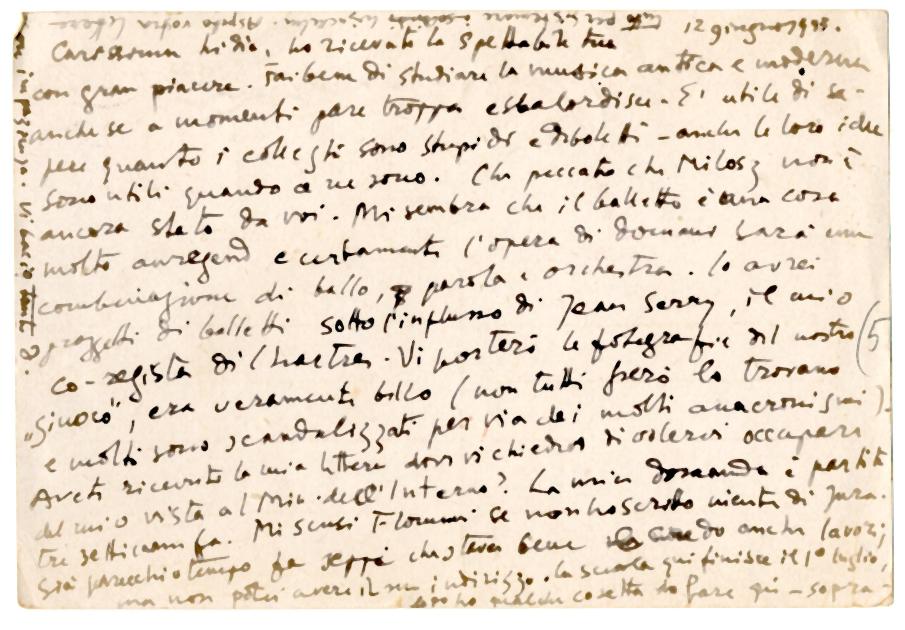 12 giugno 1933.
Carissima Lidia, ho ricevuto la Spettabile tua
con gran piacere. Fai bene di studiare la musica antica e moderna
anche se a momenti pare troppa e sbalordisce. E' utile di sa-
pere quanto i colleghi sono stupidi e deboletti - anche le loro idee
sono utili quando ce ne sono. Che peccato che Milosz non è
ancora stato da voi. Mi sembra che il balletto è una cosa
molto e certamente l'opera di domani sarà una
combinazione di ballo, parola e orchestra. Io avrei
progetti di balletti sotto l'influsso di Jean Serry, il mio
co-regista di Chartres. Vi porterò le fotografie del nostro
"Giuoco", era veramente bello (non tutti però lo trovano
e molti sono scandalizzati per via dei molti anacronismi).
Avete ricevuto la mia lettera dove vi chiedevo di volervi occupare
del mio vista al Min. dell'Interno? La mia domanda è partita
tre settimane fa. Mi scusi se non ho scritto niente di
Già parecchio tempo fa seppi che stava bene anche lavori,
ma non potei avere il suo indirizzo. La scuola qui finisce il 1º luglio,
ho qualche cosetta da fare qui - sopra-
in pag Vi bacio tanto
(5